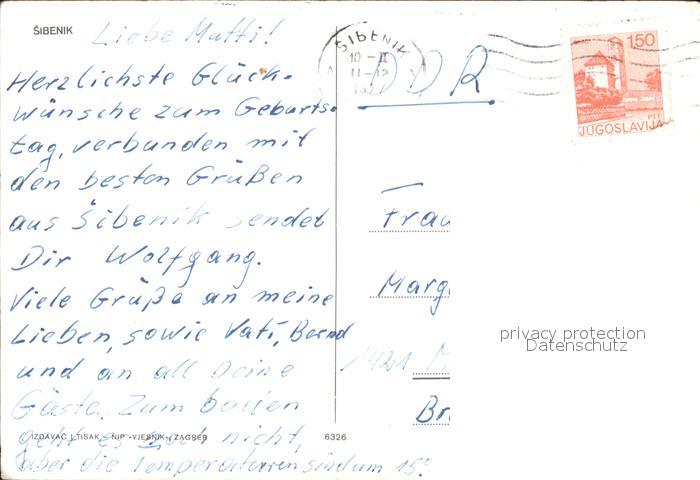 ŠIBENIK
Liebe Mutti!
Herzlichste Glück-
wünsche zum Geburts-
tag, verbunden mit
den besten Grüßen
aus Šibenik sendet
Dir Wolfgang.
Viele Grüße an meine
Lieben, sowie Vati, Bernd
und an all Deine
Gäste. Zum baden
geht es noch nicht,
aber die Temperaturen sind um 15°
IZDAVAČ I TISAK NIP »VJESNIK« ZAGREB
6326
ŠIBENIK
10 - II
DDR
1.50
PTT
JUGOSLAVIJA
Frau
Marg
1421
Br
privacy protection
Datenschutz